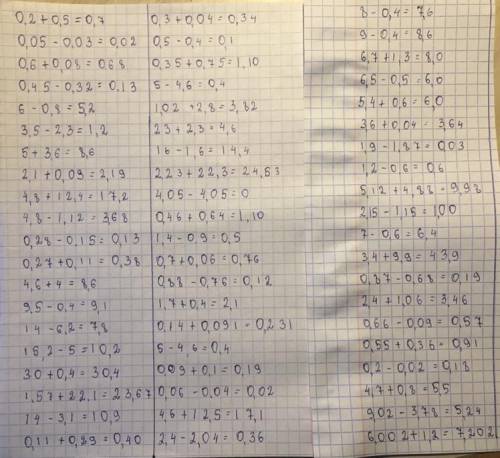 0,2 + 0,5 = 0,7
0,05 - 0,03 = 0,02
0,6 + 0,08 = 0,68
0,45 - 0,32 = 0,13
6 - 0,8 = 5,2
3,5 - 2,3 = 1,2
5 + 3,6 = 8,6
2,1 + 0,09 = 2,19
4,8 + 12,4 = 17,2
4,8 - 1,12 = 3,68
0,28 - 0,15 = 0,13
0,27 + 0,11 = 0,38
4,6 + 4 = 8,6
9,5 - 0,4 = 9,1
14 - 6,2 = 7,8
15,2 - 5 = 10,2
30 + 0,4 = 30,4
1,57 + 22,1 = 23,67
14 - 3,1 = 10,9
0,11 + 0,29 = 0,40
0,3 + 0,04 = 0,34
0,5 - 0,4 = 0,1
0,35 + 0,75 = 1,10
5 - 4,6 = 0,4
1,02 + 2,8 = 3,82
2,3 + 2,3 = 4,6
16 - 1,6 = 14,4
2,23 + 22,3 = 24,53
4,05 - 4,05 = 0
0,46 + 0,64 = 1,10
1,4 - 0,9 = 0,5
0,7 + 0,06 = 0,76
0,88 - 0,76 = 0,12
1,7 + 0,4 = 2,1
0,14 + 0,091 = 0,231
5 - 4,6 = 0,4
0,09 + 0,1 = 0,19
0,06 - 0,04 = 0,02
4,6 + 12,5 = 17,1
2,4 - 2,04 = 0,36
8 - 0,4 = 7,6
9 - 0,4 = 8,6
6,7 + 1,3 = 8,0
6,5 - 0,5 = 6,0
5,4 + 0,6 = 6,0
3,6 + 0,04 = 3,64
1,9 - 1,87 = 0,03
1,2 - 0,6 = 0,6
5,12 + 4,88 - 9,98
2,15 - 1,15 = 1,00
7 - 0,6 = 6,4
3,4 + 9,9 = 43,9
0,87 - 0,68 = 0,19
2,4 + 1,06 = 3,46
0,66 - 0,09 = 0,57
0,55 + 0,36 = 0,91
0,2 - 0,02 = 0,18
4,7 + 0,8 = 5,5
9,02 - 3,78 = 5,24
6,002 + 1,2 = 7,202